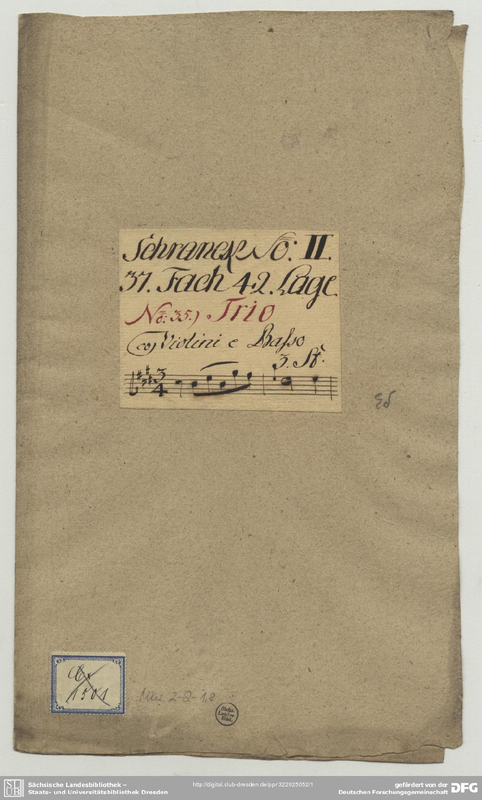 Schranck No: II.
37. Fach 42. Lage
No: 35.) Trio
co Violini e Basso
3. St.
3
4
1501
Mus. 2-Q-1,8
Sächsische Landesbibliothek –
Staats- und Universitätsbibliothek Dresden
http://digital.slub-dresden.de/ppn322925052/1
gefördert von der
Deutschen Forschungsgemeinschaft
DFG